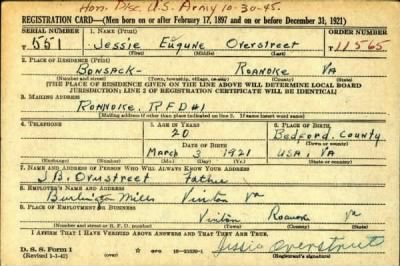 Hon. Disc. U.S. Army 10-30-45.
REGISTRATION CARD—(Men born on or after February 17, 1897 and on or before December 31, 1921)
SERIAL NUMBER 1. NAME (Print) ORDER NUMBER
T 551 Jessie Eugune Overstreet T 11565
(First) (Middle) (Last)
2. PLACE OF RESIDENCE (Print)
Bonsack- Roanoke VA
(Number and street) (Town, township, village, or city) (County) (State)
[THE PLACE OF RESIDENCE GIVEN ON THE LINE ABOVE WILL DETERMINE LOCAL BOARD
JURISDICTION; LINE 2 OF REGISTRATION CERTIFICATE WILL BE IDENTICAL]
3. MAILING ADDRESS
Roanoike. R.F.D #1
[Mailing address if other than place indicated on line 2. If same insert word same]
4. TELEPHONE 5. AGE IN YEARS 6. PLACE OF BIRTH
20 Bedford. County
DATE OF BIRTH (Town or county)
March 3 1921 USA, VA
(Exchange) (Number) (Mo.) (Day) (Yr.) (State or country)
7. NAME AND ADDRESS OF PERSON WHO WILL ALWAYS KNOW YOUR ADDRESS
J.B. Overstreet Father
8. EMPLOYER'S NAME AND ADDRESS
Burlington Mills Vinton Va
9. PLACE OF EMPLOYMENT OR BUSINESS
Vinton Roanoke Va
(Number and street or R. F. D. number) (Town) (County) (State)
I AFFIRM THAT I HAVE VERIFIED ABOVE ANSWERS AND THAT THEY ARE TRUE.
D. S. S. Form 1
(Revised 1-1-42) (over)
Jessie Overstreet
(Registrant's signature)